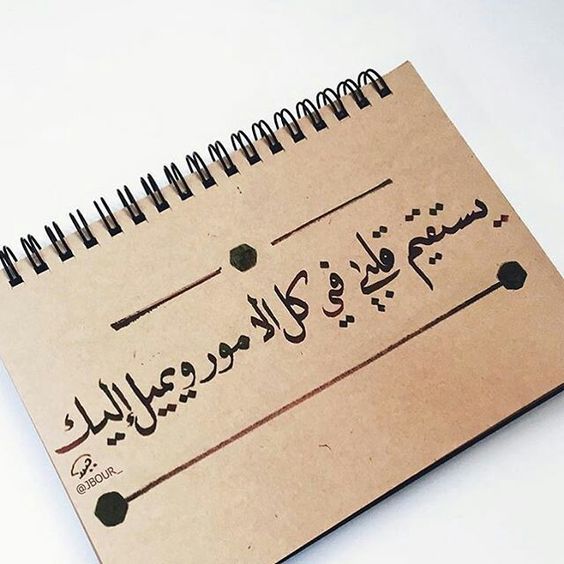 يستقيم قلبي في كل الأمور ويميل إليك
@JBOUR_